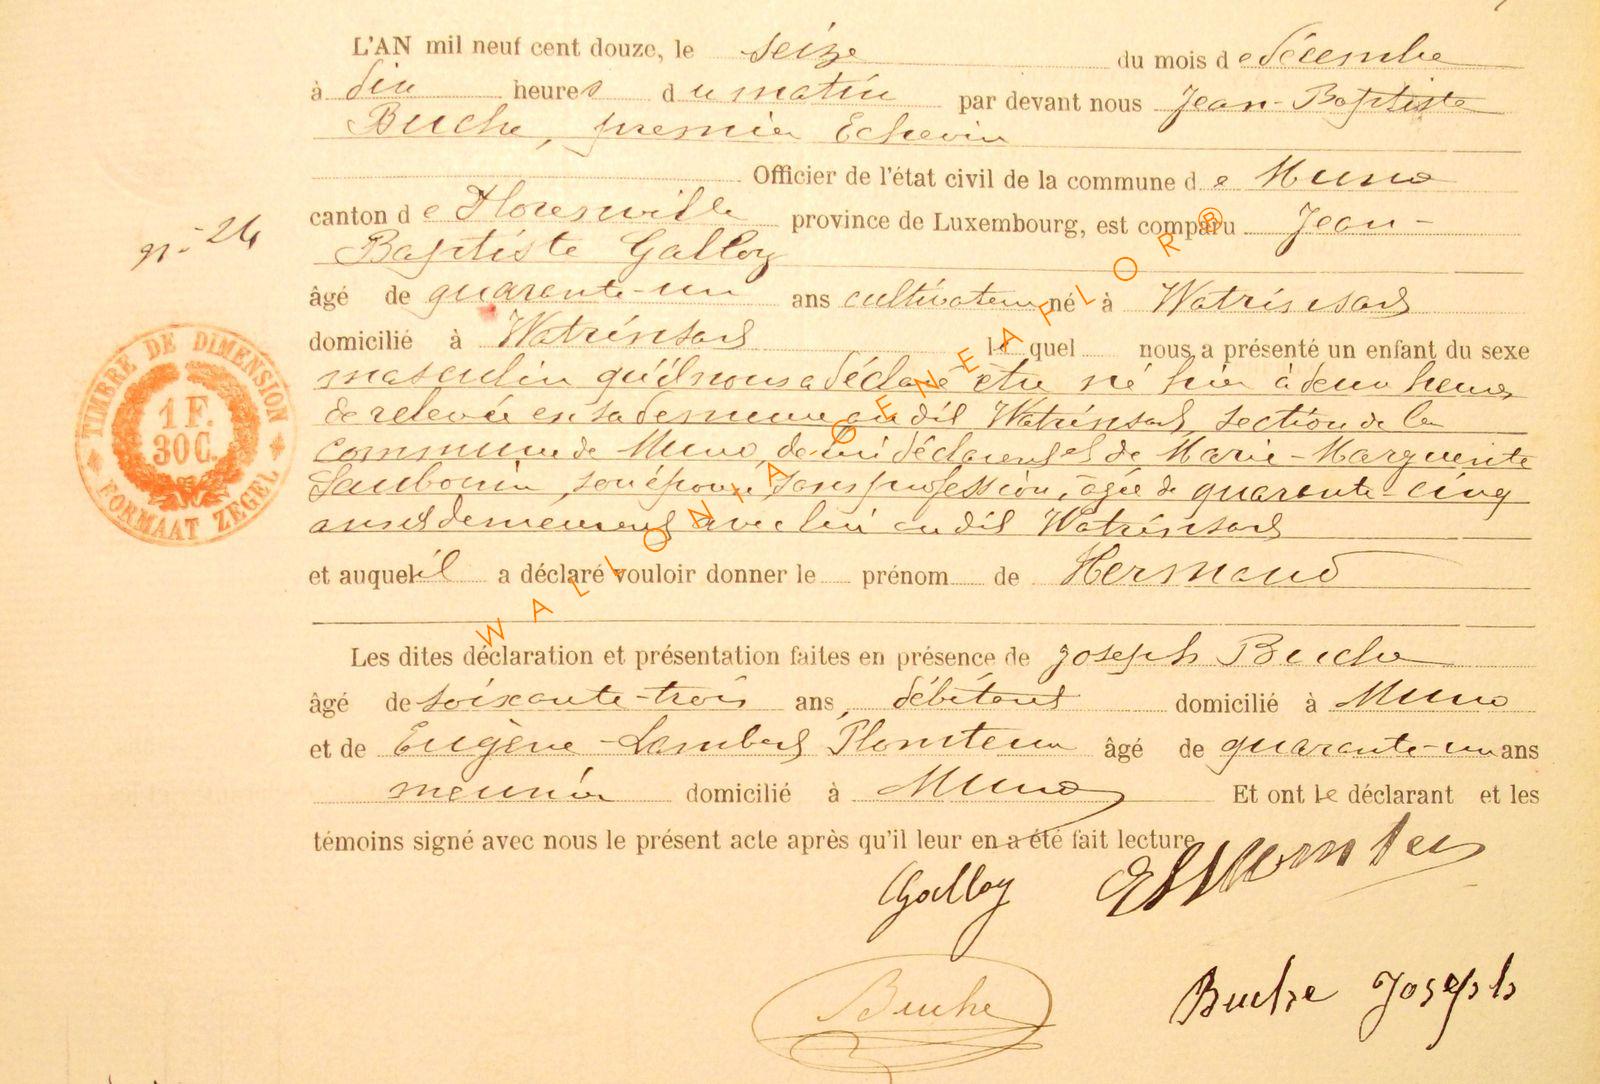 L'AN mil neuf cent douze, le seize du mois de décembre
à dix heures du matin par devant nous Jean-Baptiste
Buche, premier Echevin
Officier de l'état civil de la commune de Muno
canton de Florenville province de Luxembourg, est comparu Jean-
n° 24
Baptiste Galloy
âgé de quarante-un ans cultivateur né à Watrinsart
domicilié à Watrinsart lequel nous a présenté un enfant du sexe
masculin qu'il nous a déclaré être né hier à deux heures
de relevée en sa demeure au dit Watrinsart, section de la
commune de Muno, de lui déclarant et de Marie-Marguerite
son épouse, sans profession, âgée de quarante-cinq
ans et demeurant avec lui au dit Watrinsart
et auquel il a déclaré vouloir donner le prénom de Hermand
Les dites déclaration et présentation faites en présence de Joseph Buche
âgé de soixante-trois ans, débitant domicilié à Muno
et de Eugène-Lambert Plomteux âgé de quarante-un ans
meunier domicilié à Muno Et ont le déclarant et les
témoins signé avec nous le présent acte après qu'il leur en a été fait lecture
Galloy EPlomteux
Buche Buche Joseph
TIMBRE DE DIMENSION
1 F.
30 C.
FORMAAT ZEGEL
WALLONIA GENEAFLOR®